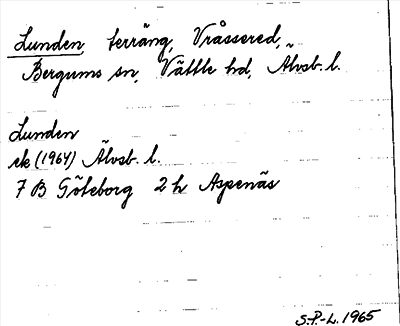 Lunden, terräng, Vråssered,
Bergums sn, Vättle hd, Älvsb. l.
Lunden
ek (1964) Älvsb. l.
7 B Göteborg 2 h Aspenäs
S.P.-L. 1965